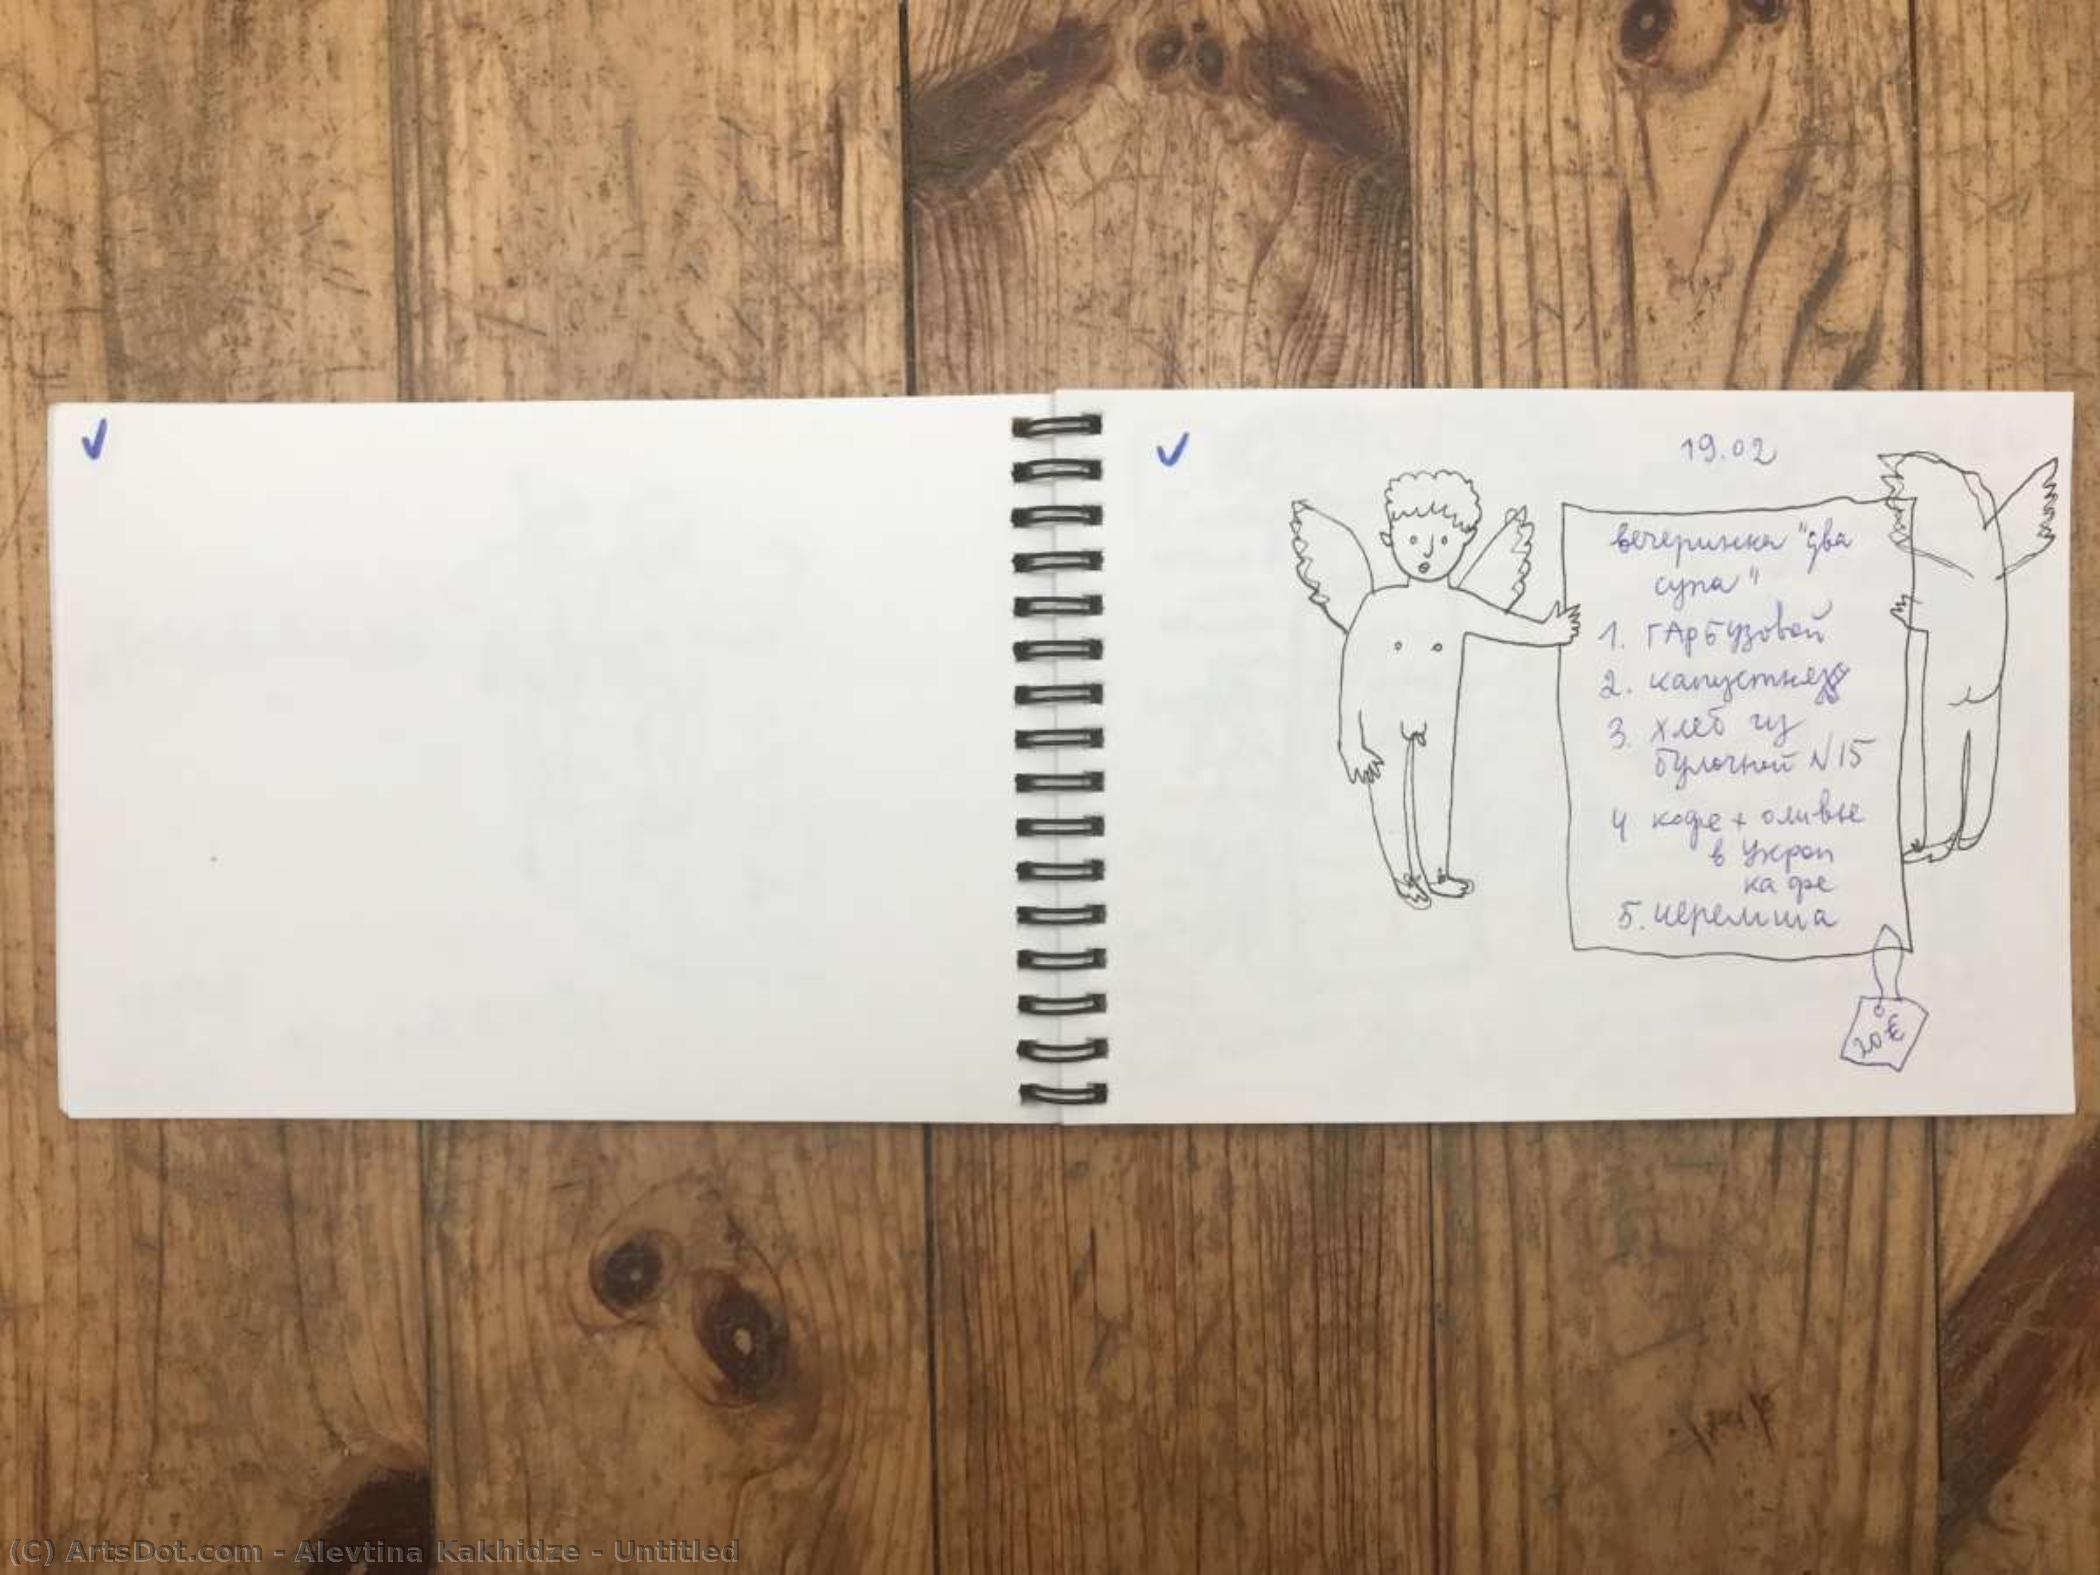 19.02
вечеринка "два
супа"
1. ГАРБУЗовой
2. капустняк
3. хлеб из
булочной N15
4 кофе + оливье
в Укроп
кафе
5. черемша
20€
(C) ArtsDot.com - Alevtina Kakhidze - Untitled